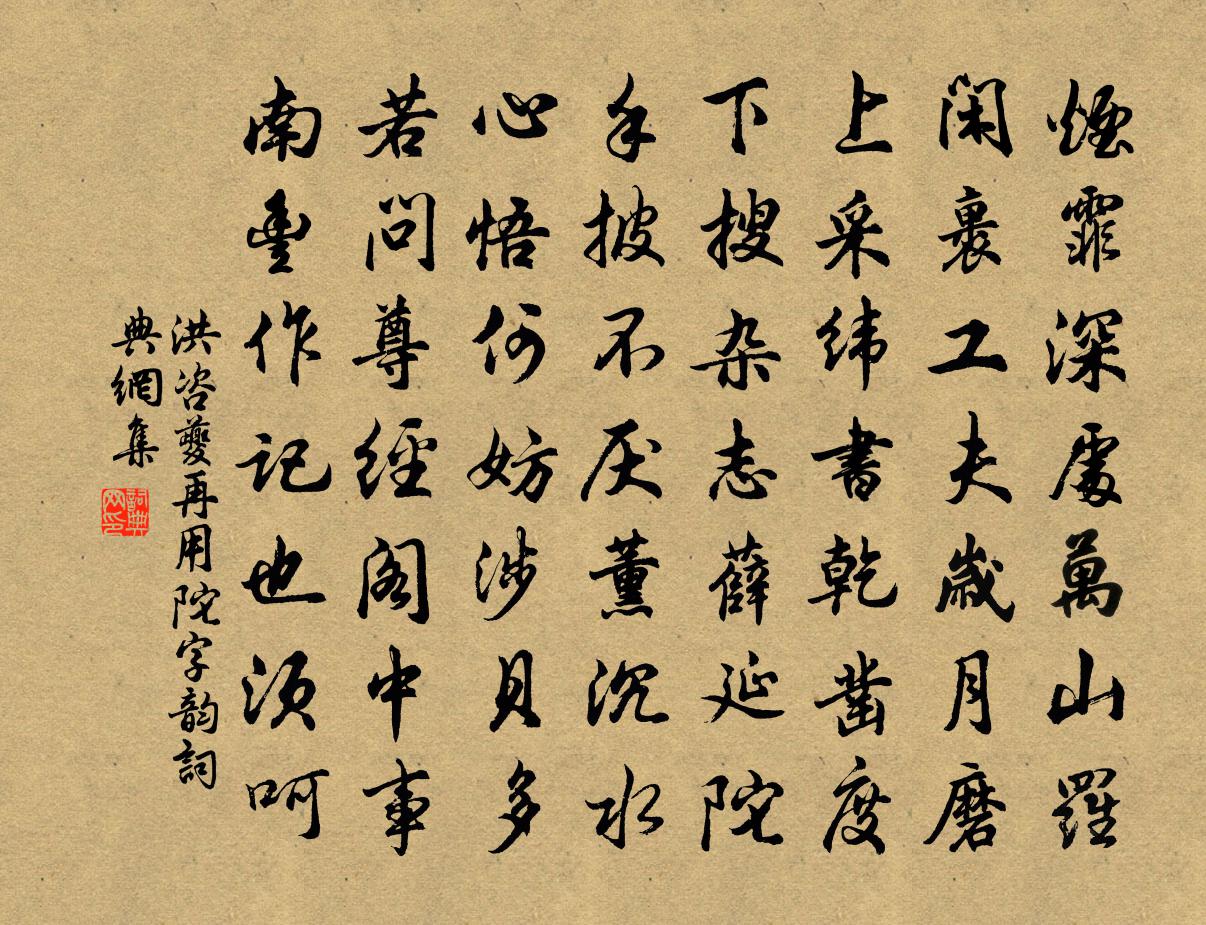 煙霏深處萬山羅
閑裹工夫歲月磨
上采緯書乾鑿度
下搜杂志薛延陀
手披不厌薰沉水
心悟何妨涉貝多
若問尊經阁中事
南豐作記也須呵
洪咨夔再用陀字韵詞
典網集
詞典网印